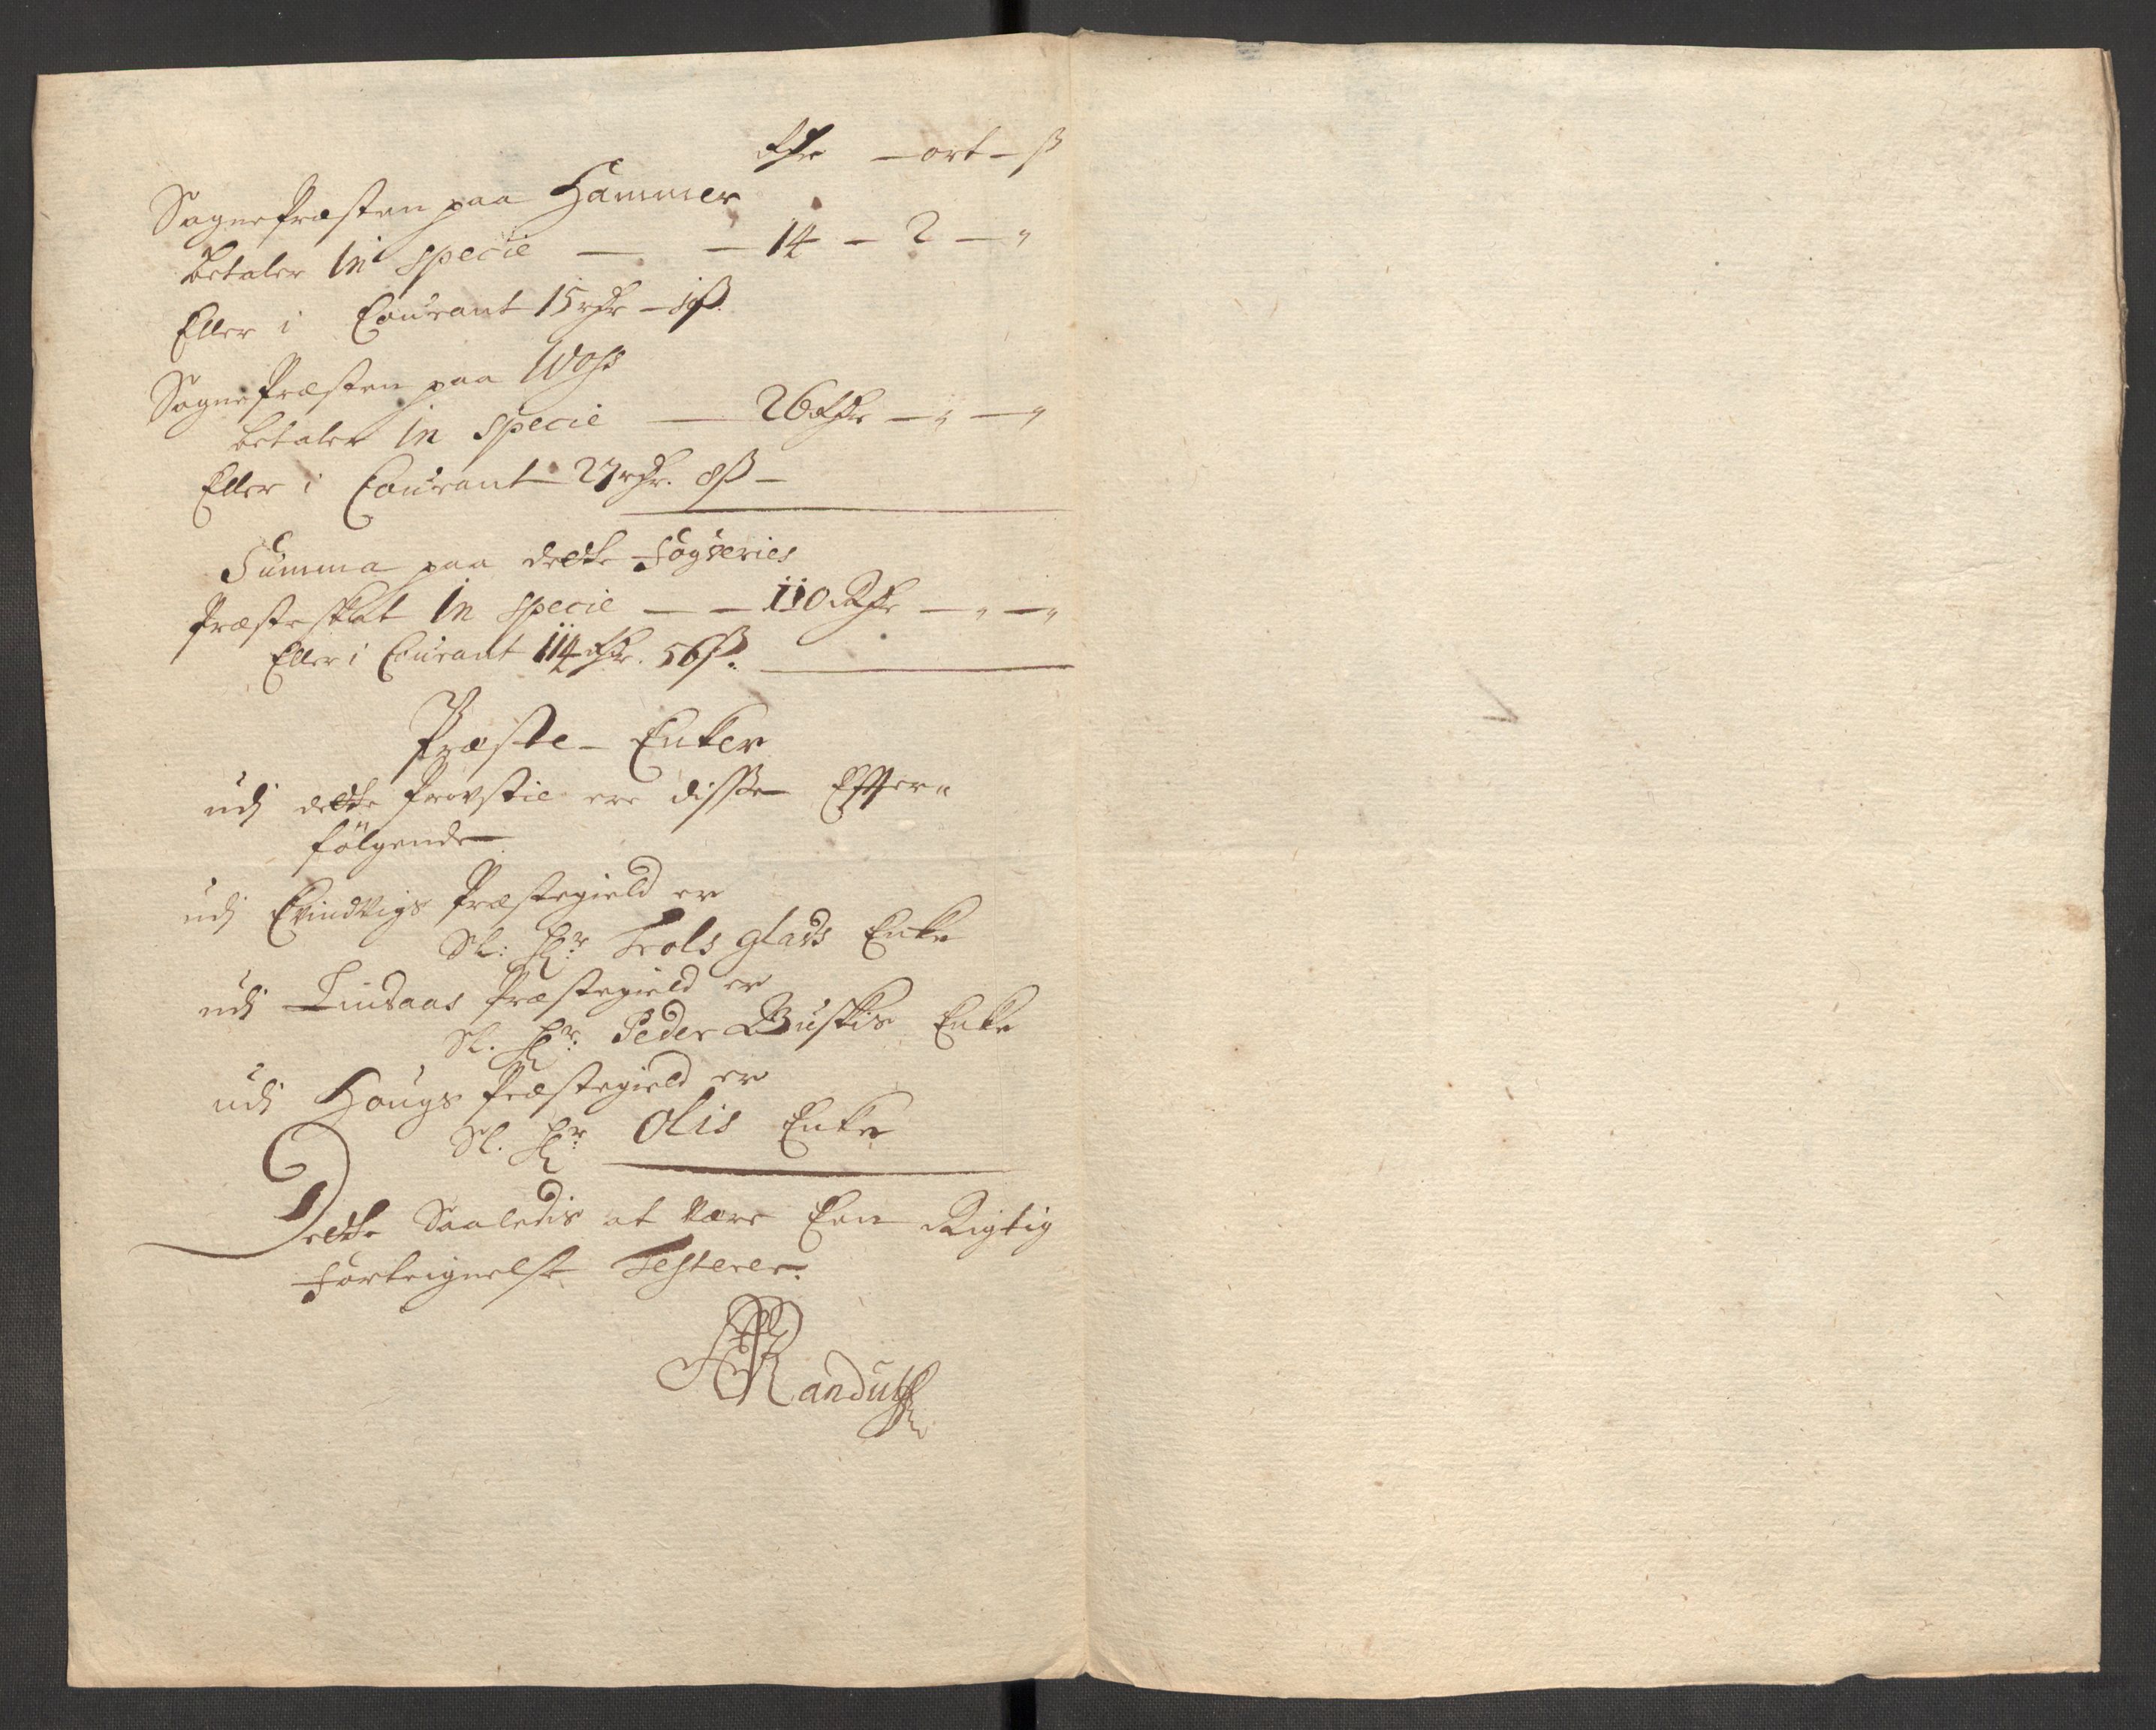 Rdr – ort – ß
Sognepræsten paa Hammer
betaler in specie — – 14 – 2 – "
Eller i Courant 15 rdr –
Sognepræsten paa Woss
betaler in specie — 26 Rdr – " – "
Eller i Courant 27 rdr. 8 ß –
Summa paa dette Fogderies
Præsteskat in specie — – 110 Rdr – " – "
Eller i Courant 114 Rdr. 56 ß.
Præste- Enker
udj dette Provstie ere disse Effter-
følgende
udj Evindvigs Præstegield er
Sl: Hr: Trols glads Enke
udj Lindaas Præstegield er
Sl. Hr: Peder Buskis Enke
udj Hougs Præstegield er
Sl. Hr: Olis Enke
Dette Saaledis at være Een Rigtig
Forteignelse Testerer.
Randulff